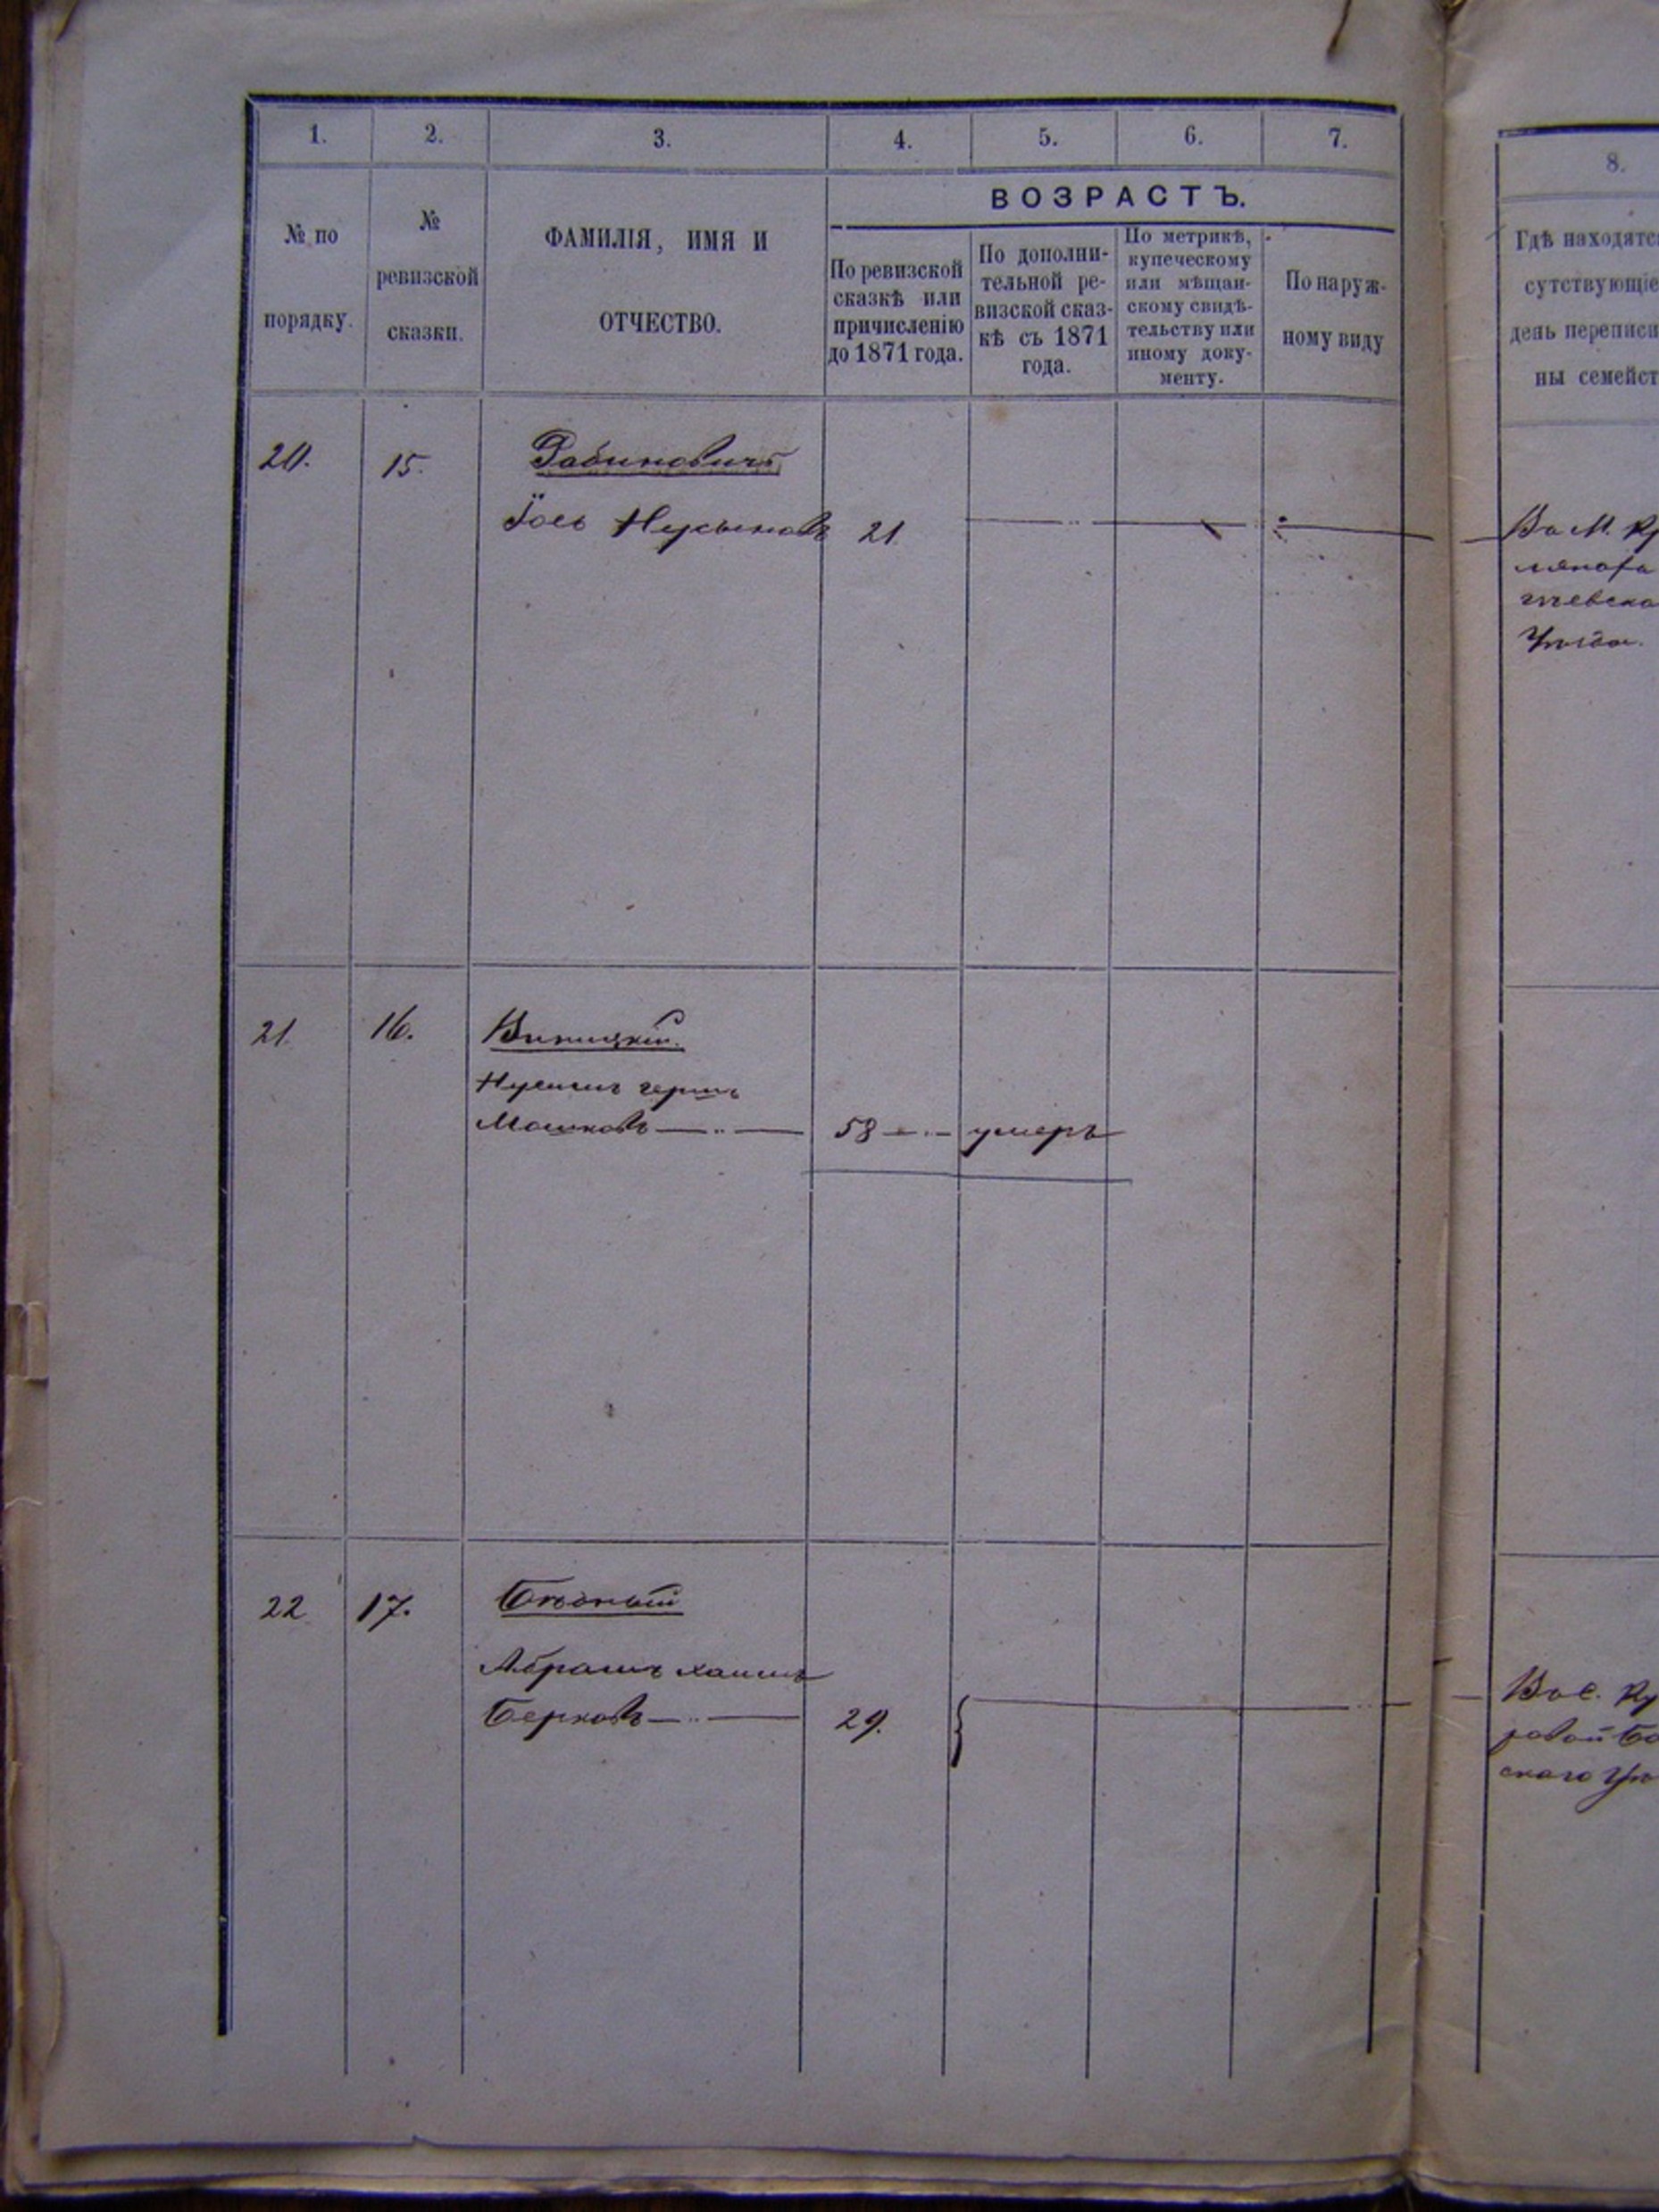 1.
2.
3.
4.
5.
6.
7.
8.
№ по
порядку.
№
ревизской
сказки.
ФАМИЛІЯ, ИМЯ И
ОТЧЕСТВО.
ВОЗРАСТЪ.
По ревизской
сказкѣ или
причисленію
до 1871 года.
По дополни-
тельной ре-
визской сказ-
кѣ съ 1871
года.
По метрикѣ,
купеческому
или мѣщан-
скому свидѣ-
тельству или
иному доку-
менту.
По наруж-
ному виду
Гдѣ находятс
сутствующіе
день переписи
ны семейст
20. 15. Рабиновичъ
Іось 21
Во М.
21 16. Виницкій.
герш
Мошковъ 58 умеръ
22 17. Бѣдный
Абрамъ хаимъ
Берковъ 29.
Во с.
скаго